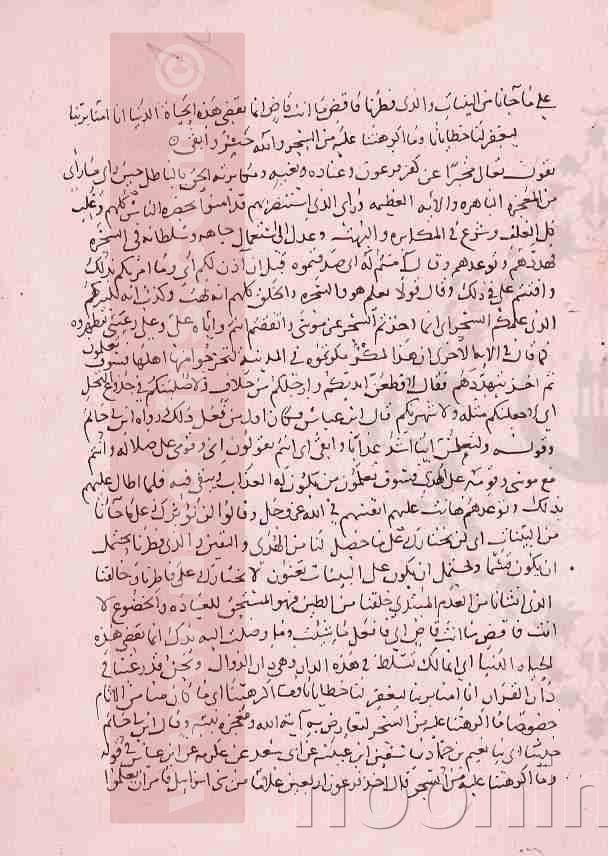 على ما جانا من البينات والذى فطرنا فاقض ما انت قاض انما تقضى هذه الحياة الدنيا انا امنا بربنا
ليغفر لنا خطايانا وما اكرهتنا عليه من السحر والله خير وابقى
يقول تعالى مخبرا عن كفر فرعون وعناده وبغيه ومكابرته الحق بالباطل حين راى ما راى
من المعجزه الباهره والايه العظيمه وراى الذى استنصر بهم قد امنوا بحضره الناس كلهم وغلب
كل الغلب وشرع فى المكابره والبهت وعدل الى استعمال جاهه وسلطانه فى السحره
فهددهم وتوعدهم وقال آمنتم له اى صدقتموه قبل ان آذن لكم اى وما امرتكم بذلك
وافتتم على فى ذلك وقال قولا يعلم هو والسحره والخلق كلهم انه بهت وكذب انه لكبيركم
الذى علمكم السحر اى انما اخذتم السحر عن موسى واتفقتم انتم واياه على وعلى رعيتى لتظهروه
كما قال فى الايه الاخرى ان هذا لمكر مكرتموه فى المدينه لتخرجوا منها اهلها فسوف تعلمون
ثم اخذ يتهددهم فقال لاقطعن ايديكم وارجلكم من خلاف ولاصلبنكم فى جذوع النخل
اى لاجعلنكم مثله ولاشهرنكم قال ابن عباس فكان اول من فعل ذلك رواه ابن ابى حاتم
وقوله ولتعلمن اينا اشد عذابا وابقى اى انتم تقولون انى وقومى على ضلاله وانتم
مع موسى وقومه على الهدى فسوف تعلمون من يكون له العذاب ويبقى فيه فلما اطال عليهم
بذلك وتوعدهم هانت عليهم انفسهم فى الله عز وجل وقالوا لن نوثرك على ما جانا
من البينات اى لن نختارك على ما حصل لنا من الهدى واليقين والذى فطرنا يحتمل
ان يكون قسما ويحتمل ان يكون على البينات يعنون لا نختارك على فاطرنا وخالقنا
الذى انشانا من العدم المبتدى خلقنا من الطين فهو المستحق للعباده والخضوع لا
انت فاقض ما انت قاض اى فافعل ما شئت وما وصلت اليه يدك انما تقضى هذه
الحياه الدنيا اى انما لك تسلط فى هذه الدار وهى دار الزوال ونحن قد رغبنا فى
دار القرار انا امنا بربنا ليغفر لنا خطايانا اى ما كان منا من الاثام
خصوصا ما اكرهتنا عليه من السحر لتعارض به ايه الله ومعجزه نبيه وقال ابن ابى حاتم
حدثنا ابى نا نعيم بن حماد نا سفين ابن عيينه عن ابى سعد عن عكرمه عن ابن عباس فى قوله
وما اكرهتنا عليه من السحر قال اخذ فرعون اربعين غلاما من بنى اسرايل فامر ان يعلموا
noormin